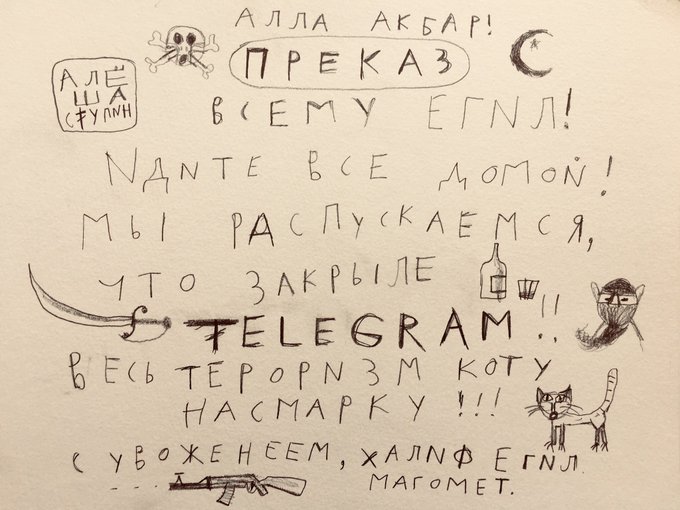 АЛЛА АКБАР!
ПРЕКАЗ
АЛЁ
ША
СТУПИН
ВСЕМУ ЕГИЛ!
ИДИТЕ ВСЕ ДОМОЙ!
МЫ РАСПУСКАЕМСЯ,
ЧТО ЗАКРЫЛЕ
TELEGRAM!!
ВЕСЬ ТЕРОРИЗМ КОТУ
НАСМАРКУ!!!
С УВОЖЕНЕЕМ, ХАЛИФ ЕГИЛ.
МАГОМЕТ.